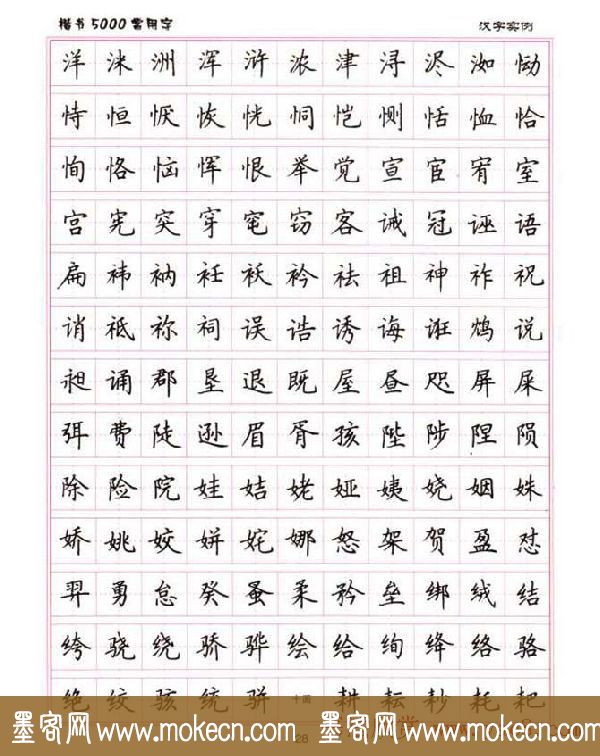 楷书5000常用字 汉字实例
洋 洣 洲 浑 浒 浓 津 浔 浕 洳 恸
恃 恒 恹 恢 恍 恫 恺 恻 恬 恤 恰
恂 恪 恼 恽 恨 举 觉 宣 宦 宥 室
宫 宪 突 穿 窀 窃 客 诫 冠 诬 语
扁 袆 衲 衽 袄 衿 祛 祖 神 祚 祝
诮 祗 祢 祠 误 诰 诱 诲 诳 鸩 说
昶 诵 郡 垦 退 既 屋 昼 咫 屏 屎
弭 费 陡 逊 眉 胥 孩 陛 陟 陧 陨
除 险 院 娃 姞 姥 娅 姨 娆 姻 姝
娇 姚 姣 姘 姹 娜 怒 架 贺 盈 怼
羿 勇 怠 癸 蚤 柔 矜 垒 绑 绒 结
绔 骁 绕 骄 骅 绘 给 绚 绛 络 骆
绝 绞 骇 统 骈 十画 耕 耘 耖 耗 耙
28
墨客网 www.mokecn.com 墨客网 www.mokecn.com